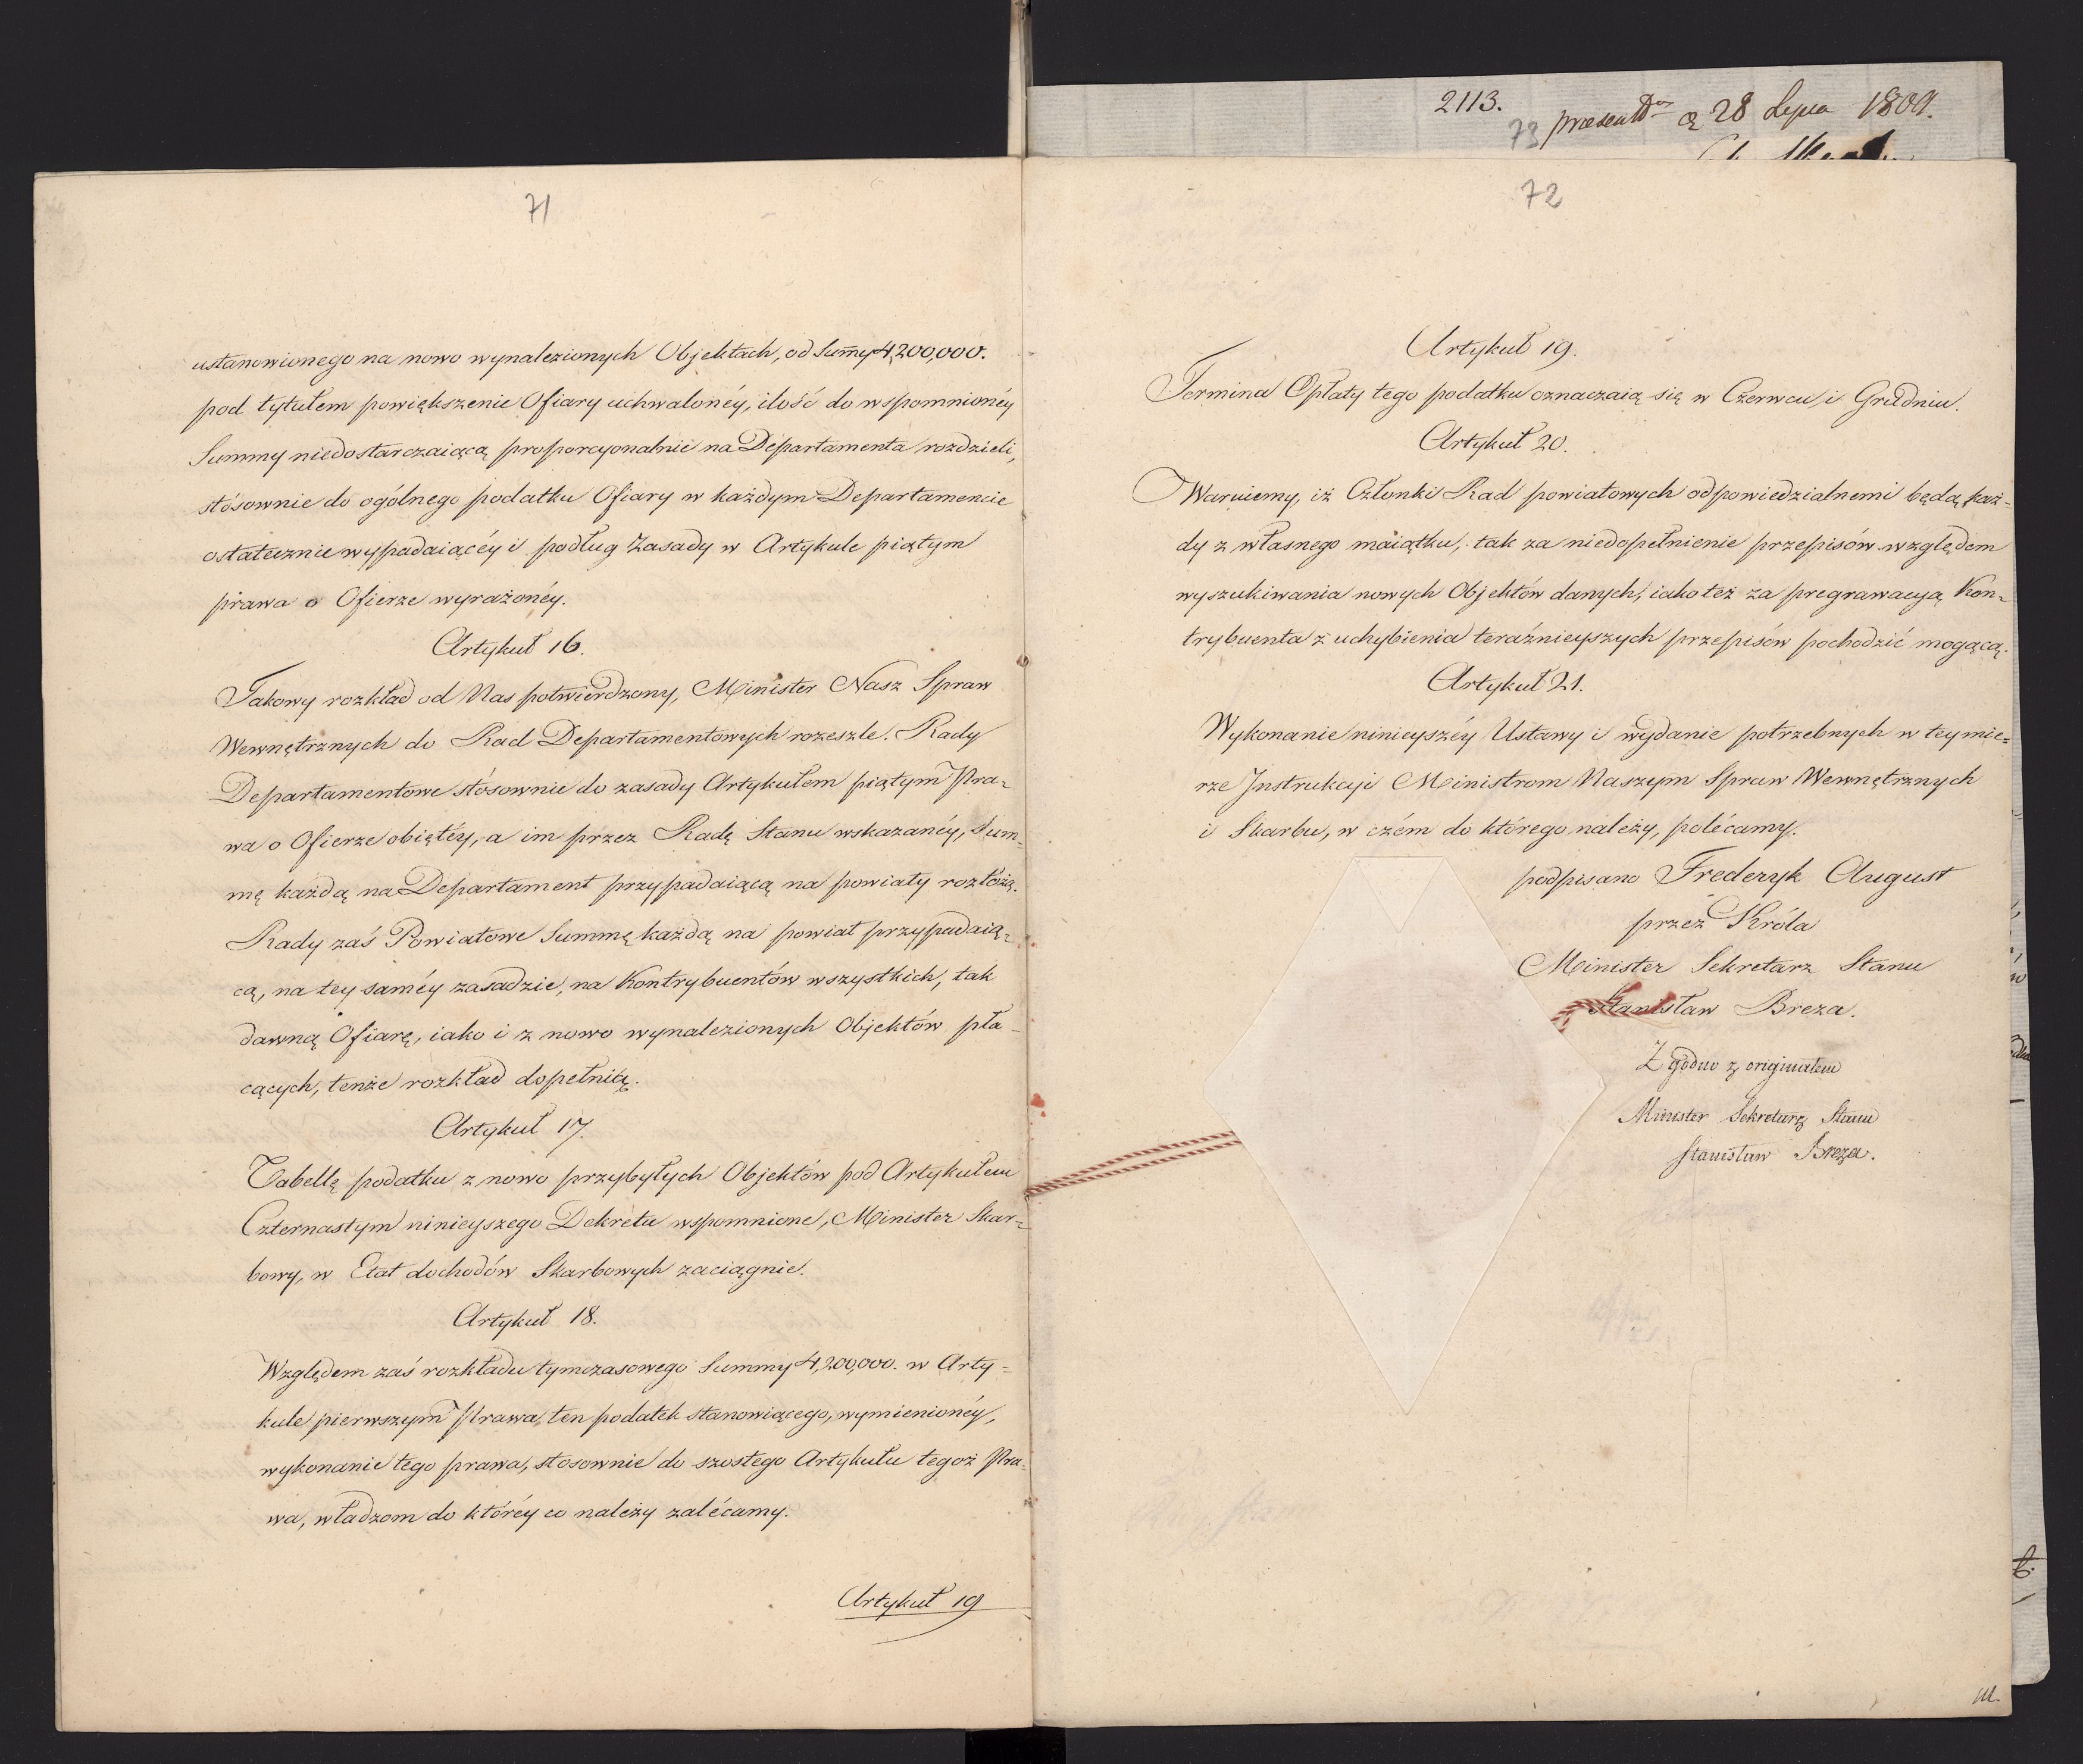 71
ustanowionego na nowo wynalezionych Objektach, od Summy 4,200,000.
pod tytułem powiększenie Ofiary uchwalonéy, ilość do wspomnionéy
Summy niedostarczaiącą proporcyonalnie na Departamenta rozdzieli,
stósownie do ogólnego podatku Ofiary w każdym Departamencie
ostatecznie wypadaiącéy i podług Zasady w Artykule piątym
prawa o Ofierze wyrażonéy.
Artykuł 16.
Takowy rozkład od Nas potwierdzony, Minister Nasz Spraw
Wewnętrznych do Rad Departamentowych rozeszle. Rady
Departamentowe stósownie do zasady Artykułem piątym Pra-
wa o Ofierze obiętéy, a im przez Radę Stanu wskazanéy, Sum-
mę każdą na Departament przypadaiącą na powiaty rozłożą.
Rady zaś Powiatowe Summę każdą na powiat przypadaią-
cą, na tey saméy zasadzie, na Kontrybuentów wszystkich, tak
dawną Ofiarę, iako i z nowo wynalezionych Objektów pła-
cących, tenże rozkład dopełnią.
Artykuł 17.
Tabellę podatku z nowo przybyłych Objektów pod Artykułem
Czternastym ninieyszego Dekretu wspomnione, Minister Skar-
bowy, w Etat dochodów Skarbowych zaciągnie.
Artykuł 18.
Względem zaś rozkładu tymczasowego Summy 4,200,000. w Arty-
kule pierwszym Prawa, ten podatek stanowiącego, wymienionéy,
wykonanie tego prawa, stosownie do szostego Artykułu tegoż Pra-
wa, władzom do któréy co należy zalécamy.
Artykuł 19
2113.
73 28 Lipca 1809.
72
Artykuł 19.
Termina Opłaty tego podatku oznaczaią się w Czerwcu, i Grudniu.
Artykuł 20.
Waruiemy, iż Członki Rad powiatowych odpowiedzialnemi będą, każ-
dy z własnego maiątku, tak za niedopełnienie przepisów względem
wyszukiwania nowych Objektów danych, iako też za pregrawacyą Kon-
trybuenta z uchybienia teraźnieyszych przepisów pochodzić mogącą.
Artykuł 21.
Wykonanie ninieyszéy Ustawy i wydanie potrzebnych w tey mie-
rze Instrukcyi Ministrom Naszym Spraw Wewnętrznych
i Skarbu, w czém do którego należy, polécamy.
podpisano Frederyk August
przez Króla
Minister Sekretarz Stanu
Stanisław Breza.
Zgodno z originałem
Minister Sekretarz Stanu
Stanisław Breza.